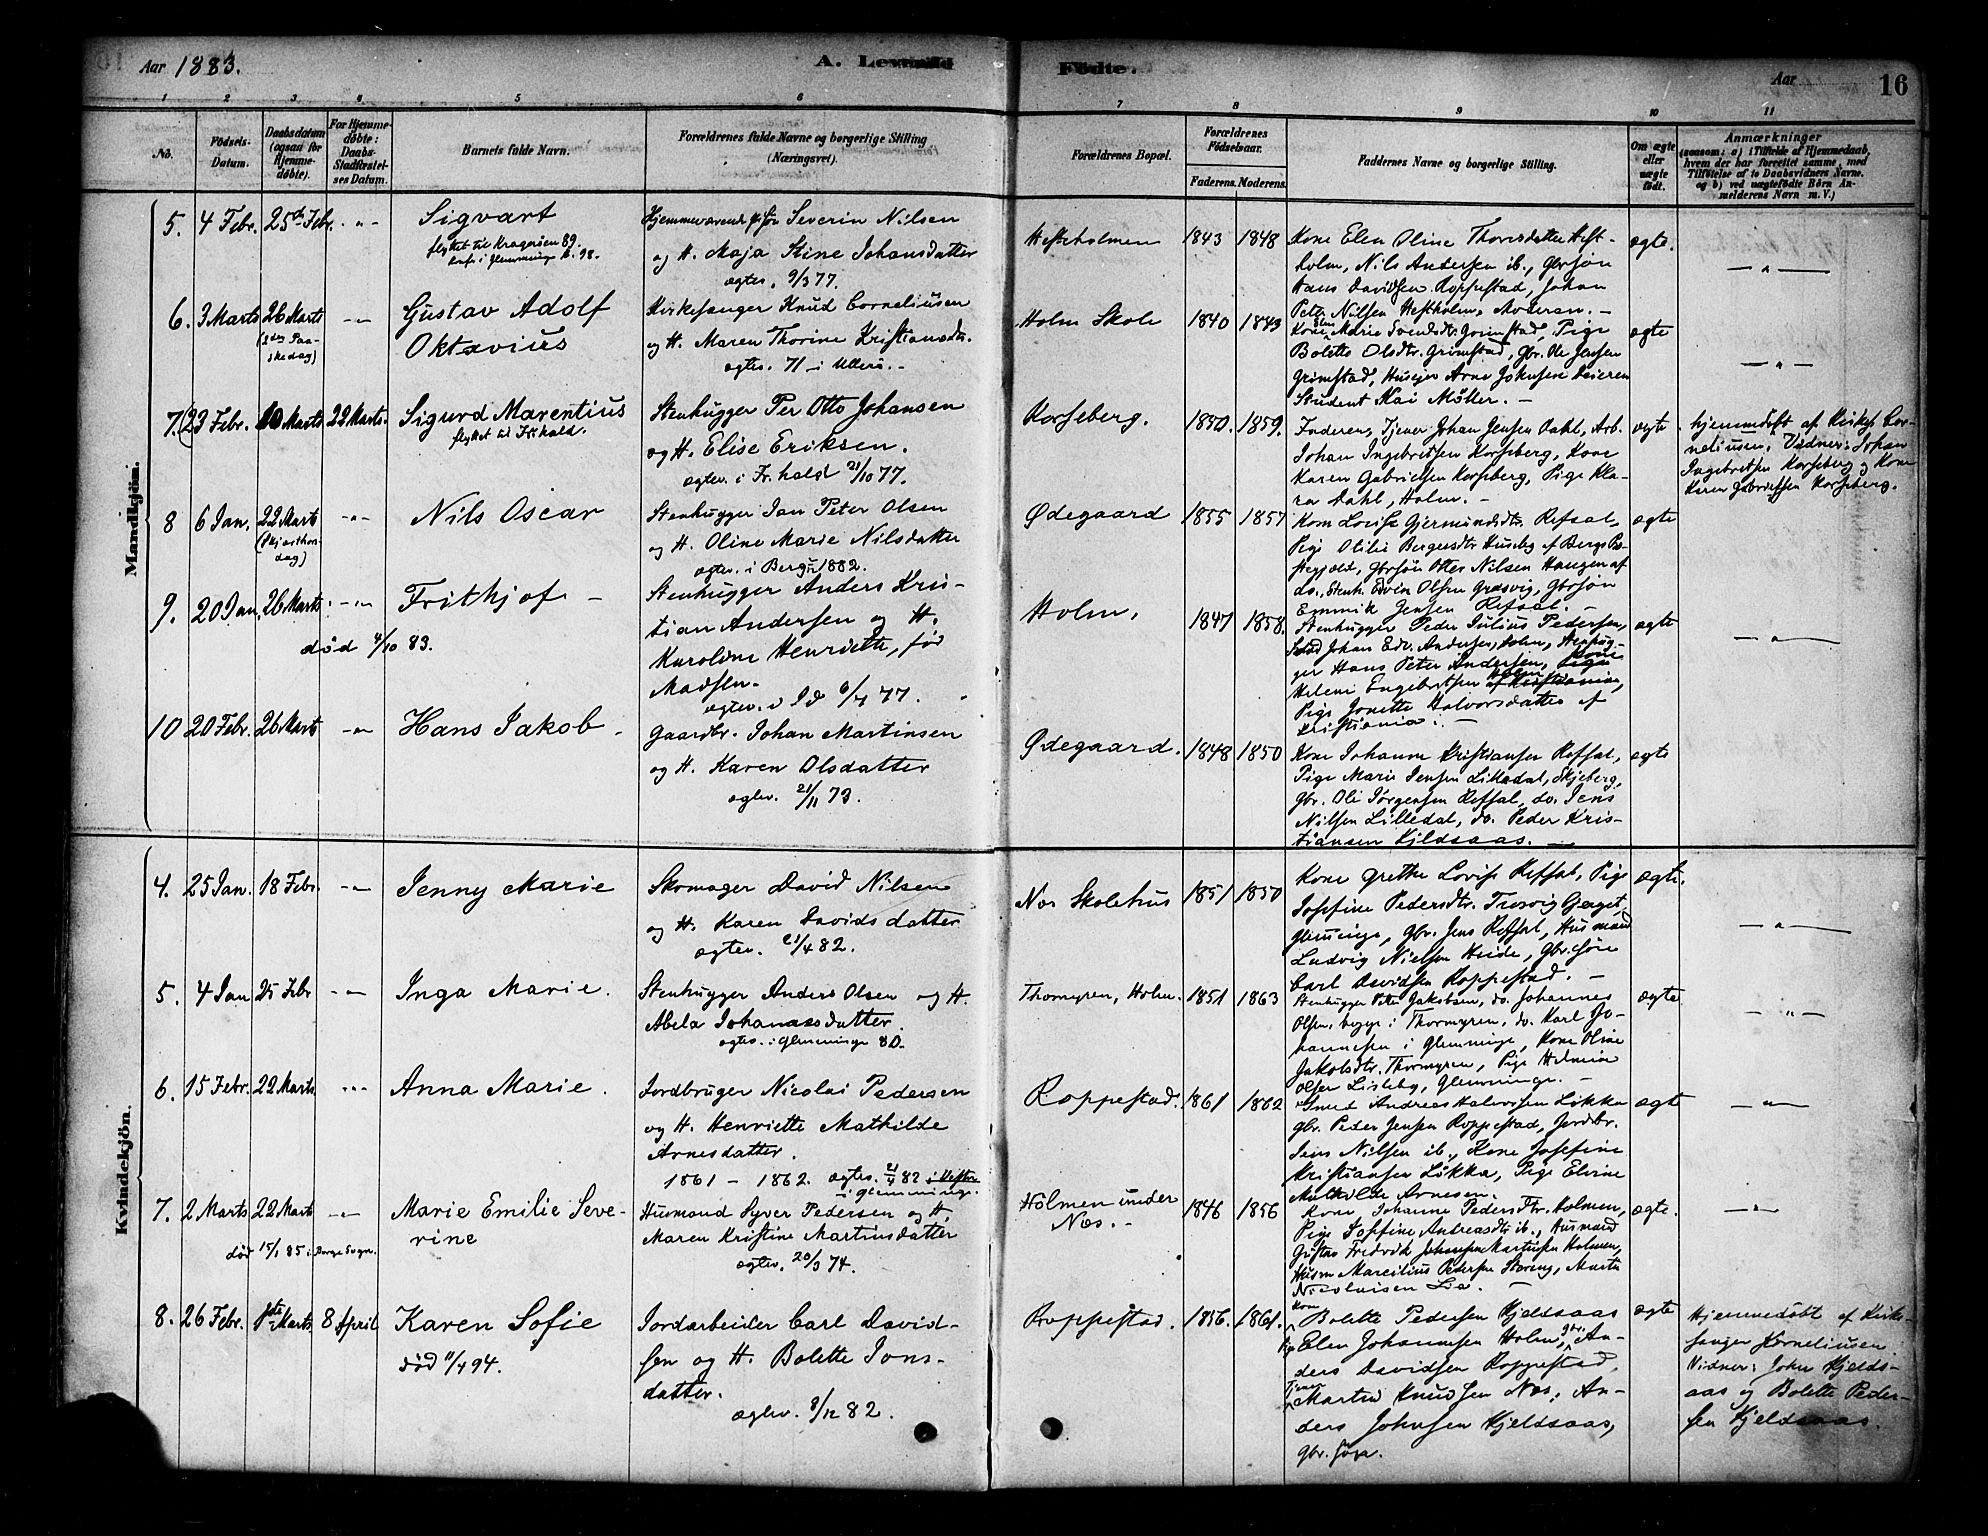 Aar 1883.
A. Levende
Födte.
Aar
16
1 2 3 4 5 6 7 8 9 10 11
No.
Födsels-
Datum.
Daabsdatum
(ogsaa for
Hjemme-
döbte).
For Hjemme-
döbte:
Daabs-
Stadfæstel-
ses Datum.
Barnets fulde Navn.
Forældrenes fulde Navne og borgerlige Stilling
(Næringsvei).
Forældrenes Bopæl.
Forældrenes
Födselsaar.
Faderens. Moderens.
Faddernes Navne og borgerlige Stilling.
Om ægte
eller
uægte
födt.
Anmærkninger
(saasom: a) i Tilfælde af Hjemmedaab,
hvem der har forrettet samme, med
Tilföielse af to Daabsvidners Navne,
og b) ved uægtefödte Börn An-
melderens Navn m. V.)
Mandkjön.
5. 4 Febr. 25de Febr. -"-
Sigvart
flyttet til Kragerøen 89.
Severin Nilsen
og H. Maja Stine Johansdatter
ægtev. 9/3 77.
Hestholmen 1843 1848
Kone Elen Oline Thoresdatter Hest-
holm, Nils Andersen ib., gbrsøn
Hans Davidsen Roppestad, Johan
Petter Nilsen Hestholm,
ægte.
-"-
6. 3 Marts 26 Marts -"-
(2den Paa-
skedag)
Gustav Adolf
Oktavius
Kirkesanger Knud Corneliusen
og H. Maren Thorine Kristiansdtr.
ægtev. 71 i Ullerø.
Holm Skole 1840 1843
Kone Elen Marie Svendsdtr. Grimstad, Pige
Bolette Olsdtr. Grimstad, gbr. Ole Jensen
Grimstad, Huseier Arne Johnsen
Student Kai Møller.
ægte
-"-
7. 23 Febr. 10 Marts 22 Marts.
Sigurd Marentius
flyttet til Fr.hald.
Stenhugger Per Otto Johansen
og H. Elise Eriksen.
ægtev. i Fr.hald 21/10 77.
Korseberg. 1850. 1859.
Faderen, Tjener Johan Jensen Dahl, Arb.
Johan Ingebretsen Korseberg, Kone
Karen Gabrielsen Korseberg, Pige Kla-
ra Dahl, Holm.
ægte
hjemmedøbt af Kirkes. Cor-
neliusen. Vidner: Johan
Ingebretsen Korseberg og Kone
Karen Gabrielsen Korseberg.
8 6 Jan. 22 Marts -"-
(Skjærthors-
dag)
Nils Oscar
Stenhugger Jan Peter Olsen
og H. Oline Marie Nilsdatter
ægtev. i Berg 1882.
Ødegaard 1855 1857
Kone Lovise Gjermundsdtr. Refsal,
Pige Otilie Bergersdtr. Huseby af Bergs Præ-
stegjeld, gbrsøn Nilsen Haugen af
do., Stenh. Edvin Olsen Græsvig, gbrsøn
Emmik Jensen Refsal.
ægte
9. 20 Jan. 26 Marts. -"-
død 4/10 83.
Frithjof
Stenhugger Anders Kris-
tian Andersen og H.
Karoline Henriette, fød
Madsen.
ægtev. i Id 6/4 77.
Holm, 1847 1858.
Stenhugger Peder Julius Pedersen,
Johan Edv. Andersen, Holm, Stenhug-
ger Hans Peter Andersen, Kone
Helene Engebretsen Holm
Pige Jonette Halvorsdatter af
Kristiania.
ægte
-"-
10 20 Febr. 26 Marts -"-
Hans Jakob
Gaardbr. Johan Martinsen
og H. Karen Olsdatter
ægtev. 21/11 73.
Ødegaard. 1848 1850
Kone Johanne Kristiansen Refsal,
Pige Marie Jensen Lilledal, Skjeberg,
gbr. Ole Jørgensen Refsal, do. Jens
Nilsen Lilledal, do. Peder Kris-
tiansen Kjeldsaas.
ægte
Kvindekjön.
4. 25 Jan. 18 Febr. -"-
Jenny Marie
Skomager David Nilsen
og H. Karen Davidsdatter
ægtev. 21/4 82.
Næs Skolehus 1851 1850
Kone Grethe Lovise Refsal, Pige
Josefine Pedersdtr. Trosvig
Glemminge, Gbr. Jens Refsal, Husmand
Ludvig Nielsen Heide, Gbr.søn
Carl Davidsen Roppestad.
ægte.
-"-
5. 4 Jan 25 Febr -"-
Inga Marie.
Stenhugger Anders Olsen og H.
Abela Johannesdatter.
ægtev. i Glemminge 80.
Thormyren, Holm. 1851 1863
Stenhugger Peter Jakobsen, do. Johannes
Olsen, begge i Thormyren, do. Karl Jo-
hannesen i Glemminge, Kone Oline
Jakobsdtr. Thormyren, Pige Helmine
Olsen Lisleby, Glemminge.
ægte
-"-
6. 15 Febr. 22 Marts. -"-
Anna Marie.
Jordbruger Nicolai Pedersen
og H. Henriette Mathilde
Arnesdatter.
1861 - 1862. ægtev. 21/4 82
i Glemminge.
Roppestad. 1861 1862
Smed Andreas Halvorsen Løkka
gbr. Peder Jensen Roppestad, Jordbr.
Jens Nilsen ib., Kone Josefine
Kristiansen Løkka, Pige Elvine
Mathilde Arnesen.
ægte
-"-
7. 2 Marts 22 Marts -"-
død 15/1 85 i Borge Sogn.
Marie Emilie Seve-
rine
Husmand Syver Pedersen og H.
Maren Kristine Martinsdatter
ægtev. 20/3 74.
Holmen under
Næs. 1846 1856
Kone Johanne Pedersdtr. Holmen,
Pige Josefine Andreasdtr. ib., Husmand
Gustav Fredrik Johansen Holmen,
Husm. Marcilius Pedersen Storeng, Martin
Nicolaisen Lie.
ægte.
-"-
8. 26 Febr. 1ste Marts 8 April
Karen Sofie
død 11/4 94.
Jordarbeider Carl David-
sen og H. Bolette Jons-
datter.
ægtev. 8/12 82.
Roppestad. 1856. 1861.
Kone Bolette Pedersen Kjeldsaas
Pige Elen Johannesen Holm, gbr. An-
ders Davidsen Roppestad,
Tjener Martin Knudsen Næs, An-
ders Johnsen Kjeldsaas,
gbr. søn.
ægte
Hjemmedøbt af Kirke-
sanger Korneliusen.
Vidner: John Kjelds-
aas og Bolette Peder-
sen Kjeldsaas.